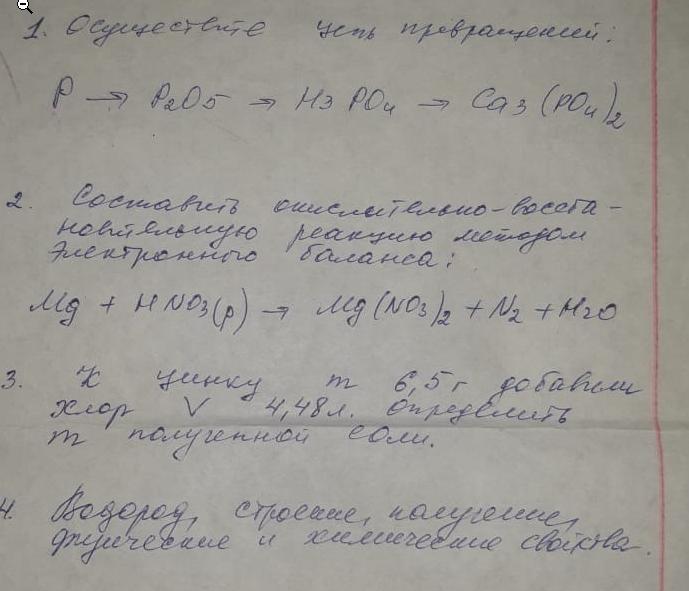 1. Осуществите цепь превращений:
P → P2O5 → H3PO4 → Ca3(PO4)2
2. Составить окислительно-восста-
новительную реакцию методом
электронного баланса:
Mg + HNO3(р) → Mg(NO3)2 + N2 + H2O
3. К цинку m 6,5 г добавили
хлор V 4,48 л. Определить
m полученной соли.
4. Водород, строение, получение,
физические и химические свойства.